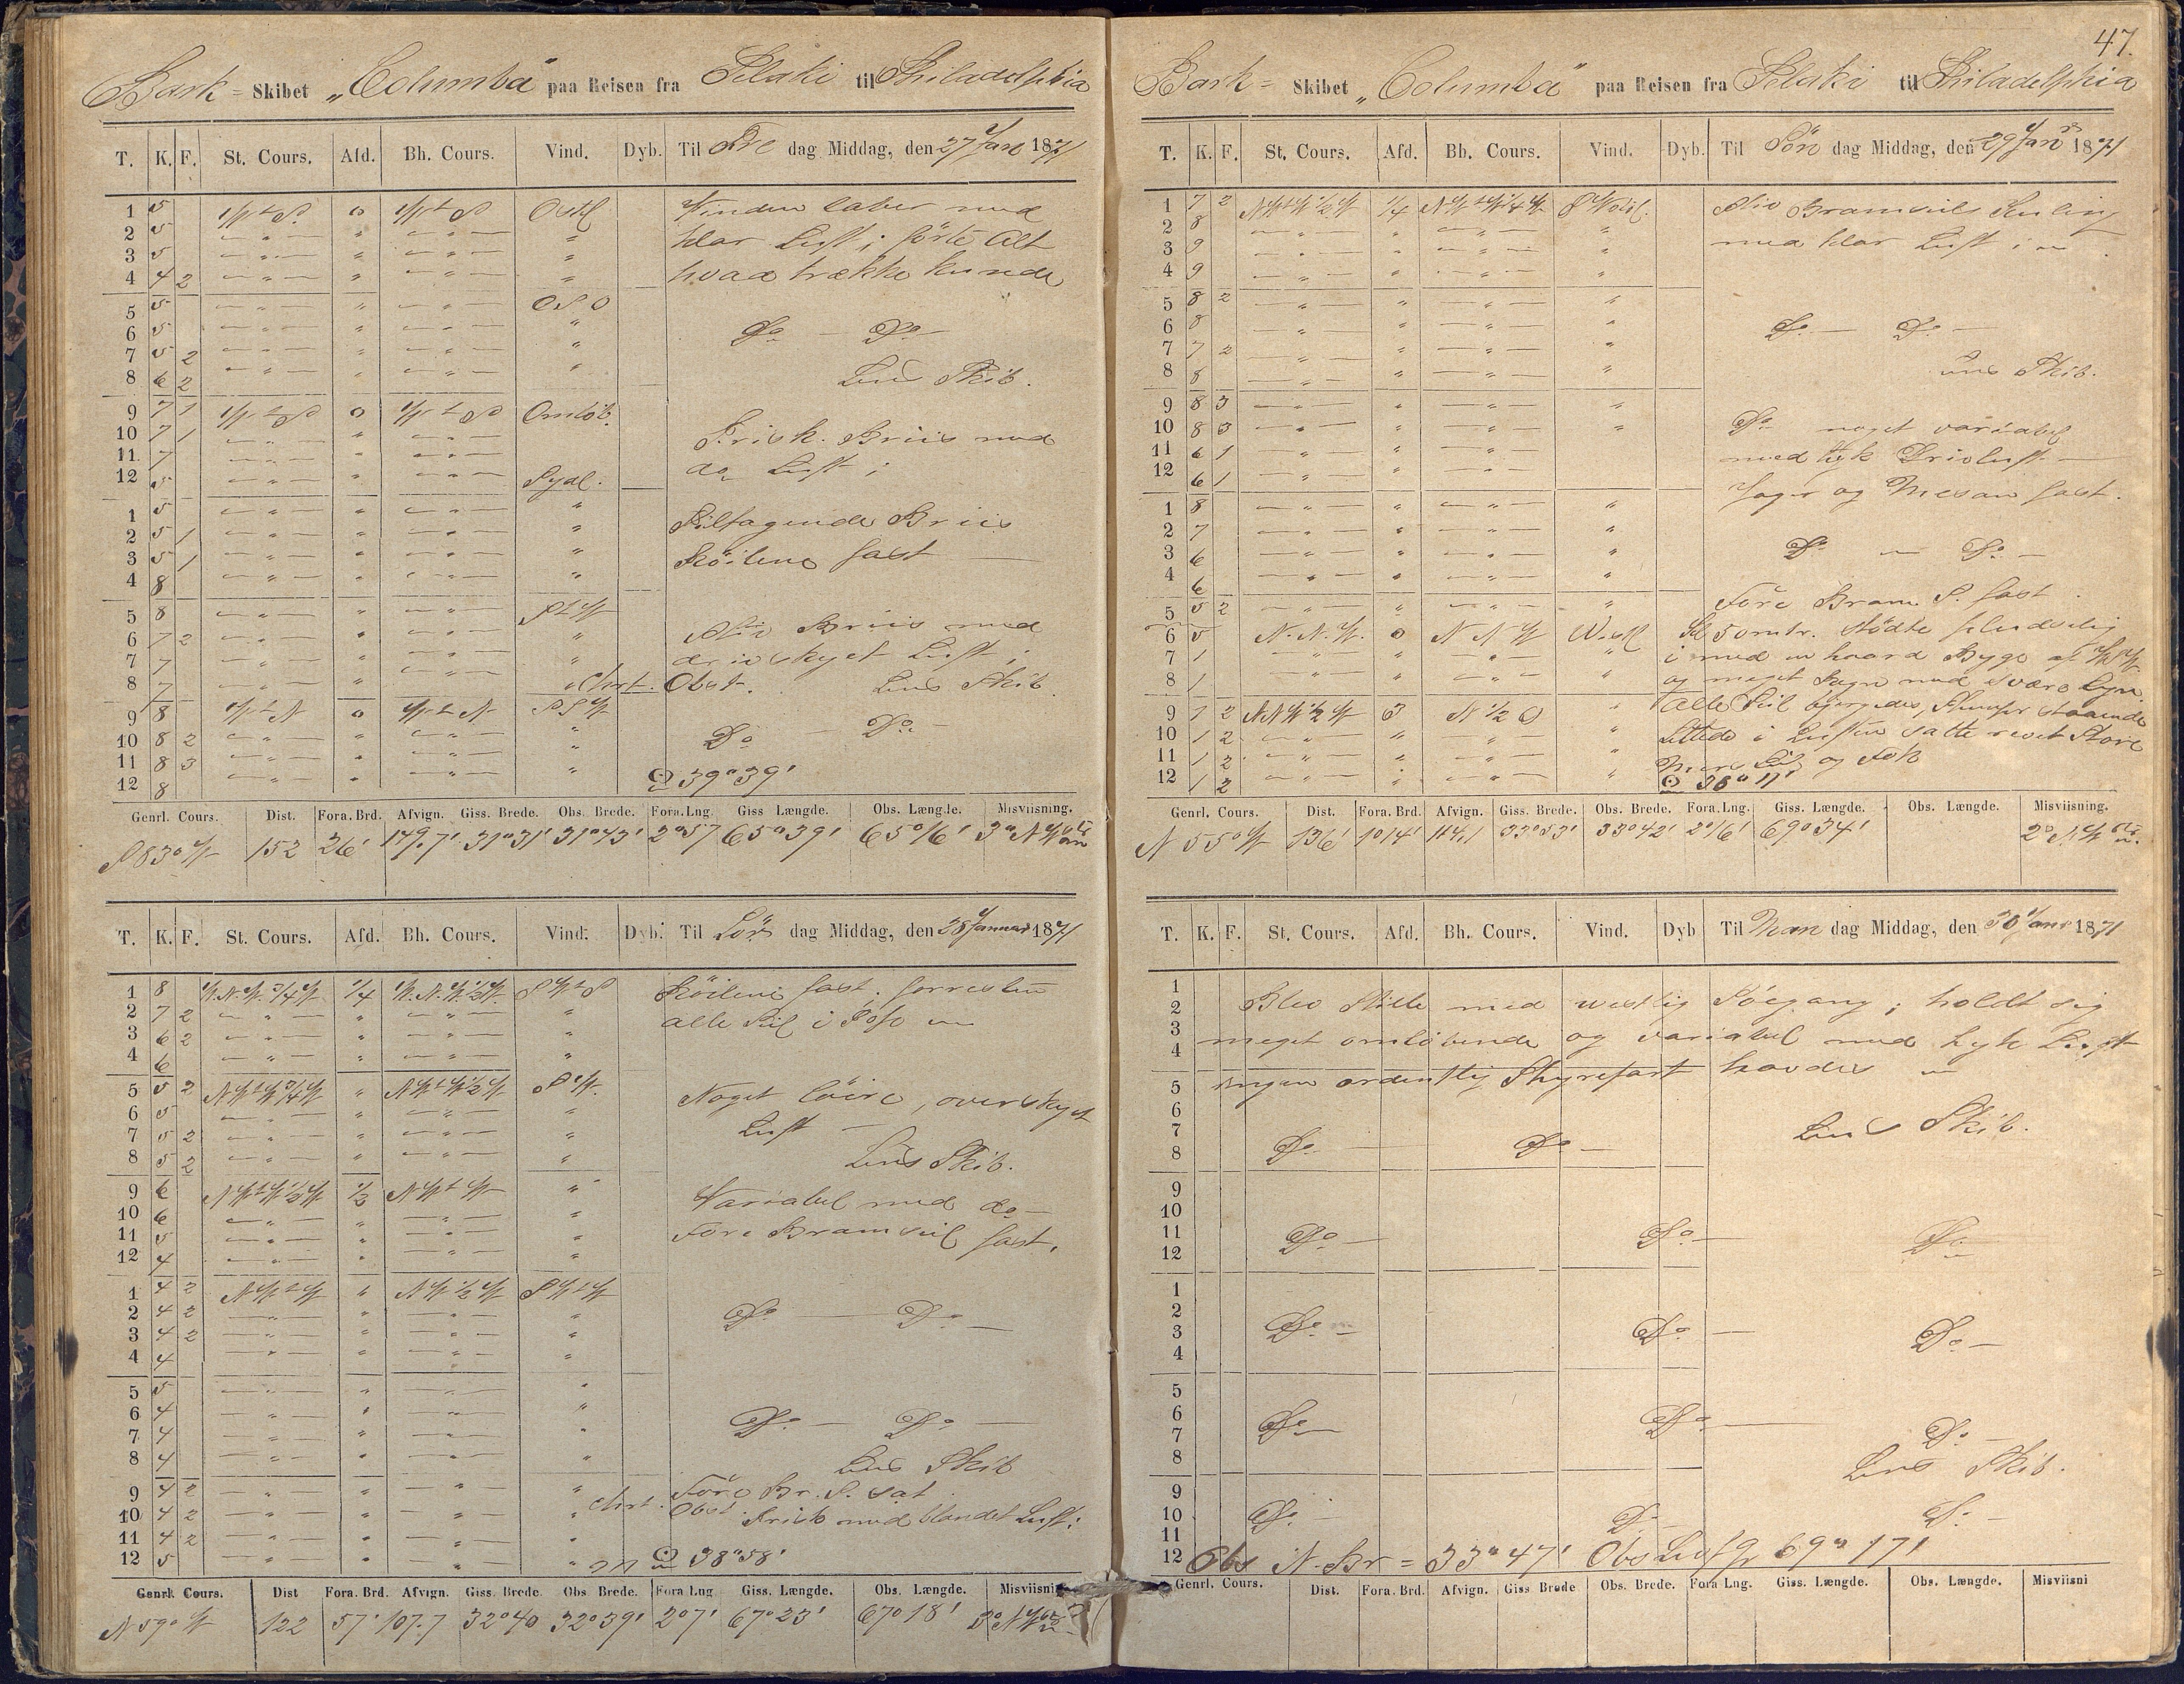 Bark = Skibet „Columba" paa Reisen fra Selaki til Philadelphia
T. K. F. St. Cours. Afd. Bh. Cours. Vind. Dyb. Til Fre dag Middag, den 27 Jan 1871
1 5 W t S 0 W t S Ostl Vinden laber med
2 5 — " — " — " — " klar Luft; förte Alt
3 5 — " — " — " — "
4 4 2 — " — " — " — " hvad trække kunde
5 5 — " — " — " — OSO
6 5 — " — " — " — " Do — Do —
7 5 2 — " — " — " — "
8 6 2 — " — " — " — " Lens Skib.
9 7 1 W t S 0 W t S Omlöb.
10 7 1 — " — " — " — Frisk Briis med
11 7 — " — " — " — do Luft;
12 5 — " — " — " — Sydl.
1 5 — " — " — " — " Tiltagende Briis
2 5 1 — " — " — " — "
3 5 1 — " — " — " — " Röilene fast —
4 8 — " — " — " — "
5 8 — " — " — " — S t W
6 7 2 — " — " — " — " Stiv Briis med
7 7 — " — " — " — " drivskyet Luft;
8 7 — " — " — " — " Chrt. Obst. Lens Skib.
9 8 W t N 0 W t N SSW
10 8 2 — " — " — " — " Do — Do —
11 8 3 — " — " — " — "
12 8 — " — " — " — ☉ 39° 39'
Genrl. Cours. Dist. Fora. Brd. Afvign. Giss. Brede. Obs. Brede. Fora. Lng. Giss Længde. Obs. Længde. Misviisning.
S 83° W 152 26' 149.7' 31°31' 31°43' 2°57 65°39' 65°16' 3° NW
T. K. F. St. Cours. Afd. Bh. Cours. Vind. Dyb. Til Lör dag Middag, den 28 Januar 1871
1 8 W.N.W. 3/4 W 1/4 W.N.W. 1/2 W. S W t S Röilene fast. forresten
2 7 2 — " — " — " — " alle Seil i Top
3 6 2 — " — " — " — "
4 6 — " — " — " — "
5 5 2 NW t W 3/4 W " NW t W 1/2 W SW.
6 5 — " — " — " — " Noget löiere, overskyet
7 5 2 — " — " — " — " Luft —
8 5 2 — " — " — " — " Lens Skib.
9 6 NW t W 1/2 W 1/2 NW t W " Variabel med do —
10 6 — " — " — " — "
11 5 — " — " — " — " Fore Bramseil fast.
12 4 — " — " — " — "
1 4 2 NW t W " NW 1/2 W SW t W
2 4 2 — " — " — " — " Do — Do —
3 4 2 — " — " — " — "
4 4 — " — " — " — "
5 5 — " — " — " — "
6 4 — " — " — " — " Do — Do —
7 4 — " — " — " — "
8 4 — " — " — " — " Lens Skib
9 4 2 — " — " — " — " Chrt. Före Br. S. sat
10 4 2 — " — " — " — " Obst. Frisk med blandet Luft;
11 4 2 — " — " — " — "
12 5 — " — " — " — " ☉ 38° 58'
Genrl. Cours. Dist Fora. Brd. Afvign. Giss. Brede. Obs Brede. Fora Lng Giss. Længde. Obs. Længde. Misviisni
N 59° W 122 57' 107.7 32°40 32°39' 2°7' 67°23' 67°18' 3° NW
47.
Bark = Skibet „Columba" paa Reisen fra Selaki til Philadelphia
T. K. F. St. Cours. Afd. Bh. Cours. Vind. Dyb. Til Sön dag Middag, den 29 Jan 1871
1 7 2 NW t W 1/2 W 1/4 NW t W 1/4 W Stiv Bramseils Kuling
2 8 — " — " — " — "
3 9 — " — " — " — " med klar Luft;
4 9 — " — " — " — "
5 8 2 — " — " — " — "
6 8 — " — " — " — " Do — Do —
7 7 2 — " — " — " — "
8 8 — " — " — " — " Lens Skib.
9 8 3 — " — " — " — "
10 8 3 — " — " — " — " Do noget variabel
11 6 1 — " — " — " — med tyk Drivluft —
12 6 1 — " — " — " — Jager og Mesan fast.
1 8 — " — " — " — "
2 7 — " — " — " — "
3 6 — " — " — " — " Do — Do —
4 6 — " — " — " — "
5 5 2 — " — " — " — " Före Bram S. fast
6 5 N.N.W. 0 NNW Westl Kl 5 omtr. stödte pludselig
7 1 — " — " — " — " i med en haard Byge af
8 1 — " — " — " — " og meget Regn med svære Lyn.
9 1 2 NNW 1/2 W 3 N 1/2 O " Alle Seil bjergedes,
10 1 2 — " — " — " — " Lettede i Luften satte revet Store
11 1 2 — " — " — " — " Mers Seil og Fok
12 1 2 — " — " — " — " ☉ 38° 11'
Genrl. Cours. Dist. Fora. Brd. Afvign. Giss. Brede. Obs. Brede. Fora. Lng. Giss. Længde. Obs. Længde. Misviisning.
N 55° W 136' 1°14' 114.1 33°53' 33°42' 2°16' 69°34' 2° NW
T. K. F. St. Cours. Afd. Bh. Cours. Vind. Dyb Til Man dag Middag, den 30 Jan 1871
1
2 Blev Stille med westlig Söegang; holdt sig
3
4 meget omlöbende og variabel med tyk Luft
5 ingen ordentlig Styrefart havdes
6
7 Lens Skib.
8 Do — Do —
9
10
11 Do — Do — Do
12
1
2
3 Do — Do — Do —
4
5
6 Do — Do — Do —
7
8 Lens Skib.
9
10 Do — Do — Do —
11
12 Obs N. Br = 33° 47' Obs 69° 17'
Genrl. Cours. Dist. Fora. Brd. Afvign. Giss Brede Obs. Brede. Fora Lng. Giss. Længde. Obs. Længde. Misviisni